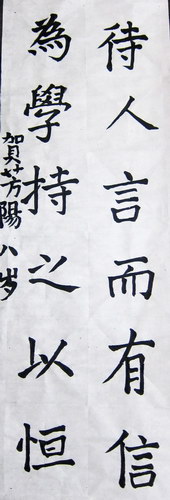 待人言而有信
為學持之以恒
賀芳陽八岁